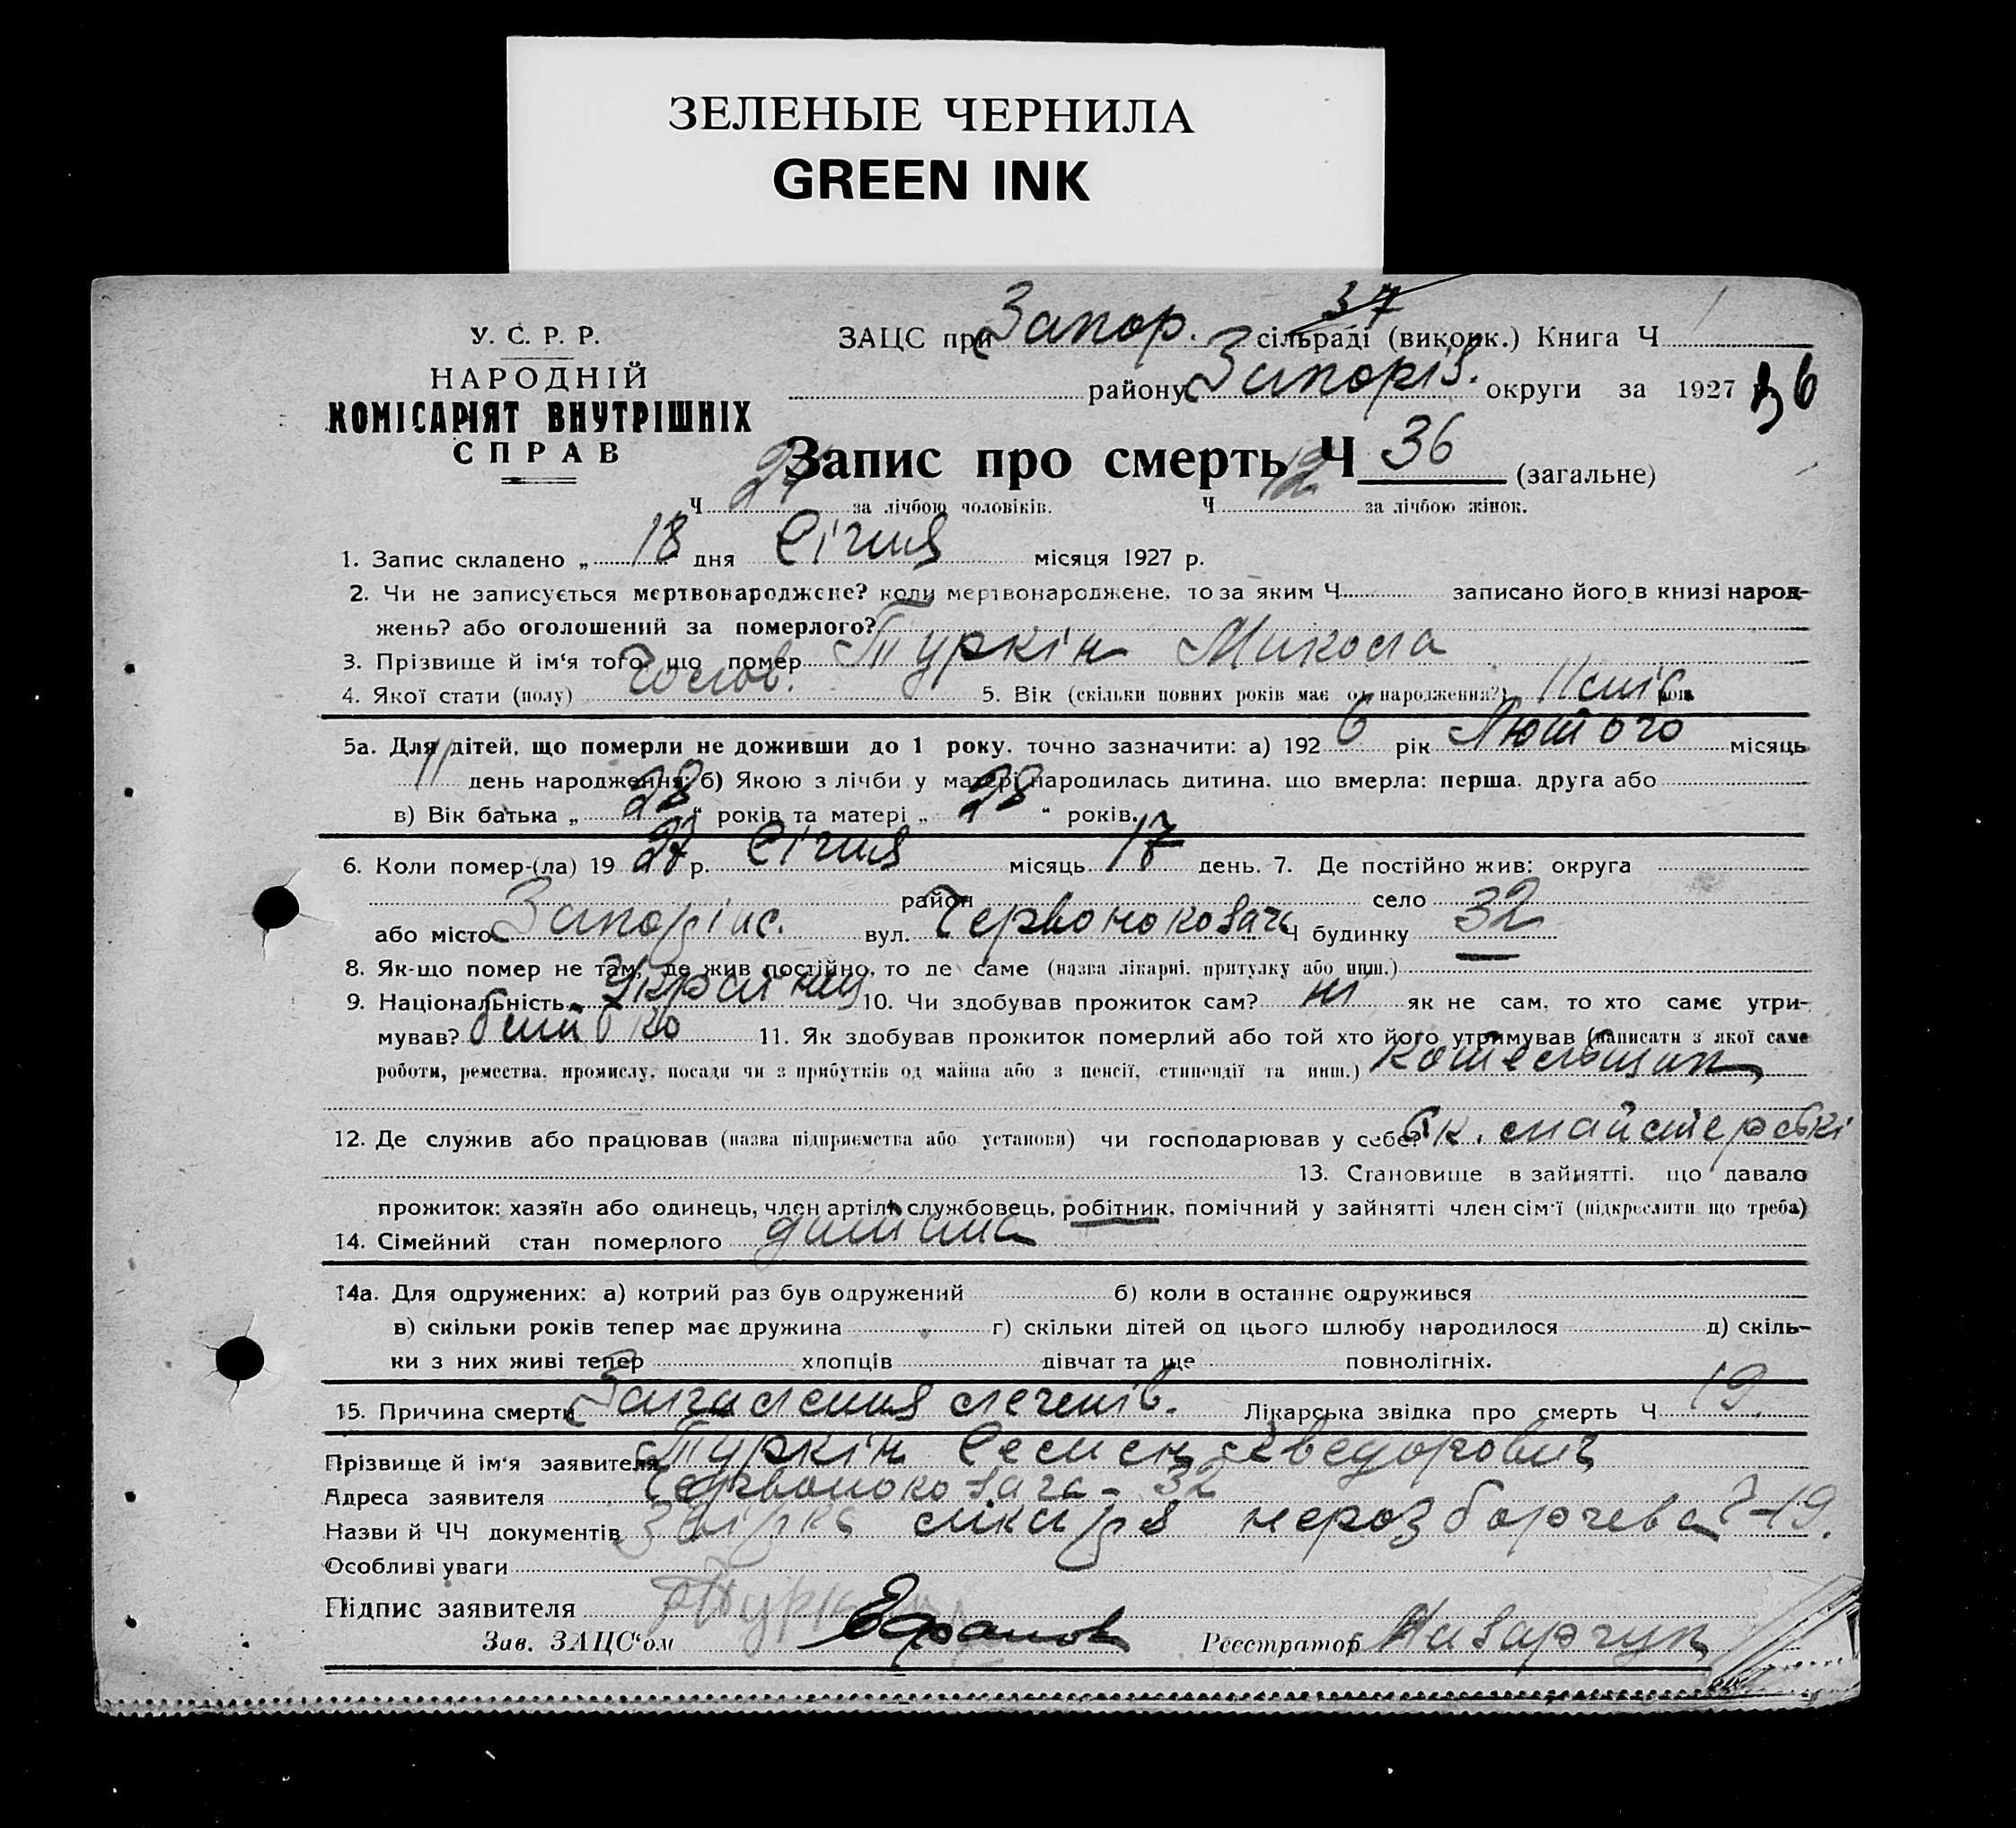 ЗЕЛЕНЫЕ ЧЕРНИЛА
GREEN INK
37
У. С. Р. Р.
НАРОДНІЙ
КОМІСАРІЯТ ВНУТРІШНІХ
СПРАВ
ЗАЦС при Запор. сільраді (виконк.) Книга Ч
району Запоріз. округи за 1927 36
Запис про смерть Ч 36 (загальне)
Ч 24 за лічбою чоловіків. Ч 12 за лічбою жінок.
1. Запис складено „ 18 дня Січня місяця 1927 р.
2. Чи не записується мертвонароджене? коли мертвонароджене, то за яким Ч записано його в книзі народ-
жень? або оголошений за померлого?
3. Прізвище й ім'я того, що помер Туркін Микола
4. Якої стати (полу) Чолов. 5. Вік (скільки повних років має од народження?) 11 міс. рок.
5а. Для дітей, що померли не доживши до 1 року, точно зазначити: а) 192 6 рік Лютого місяць
11 день народження; б) Якою з лічби у матері народилась дитина, що вмерла: перша, друга або
в) Вік батька „ 28 “ років та матері „ 28 “ років.
6. Коли помер-(ла) 19 27 р. Січня місяць 17 день. 7. Де постійно жив: округа
район село
або місто Запоріж. вул. Червонокозача Ч будинку 32
8. Як-що помер не там, де жив постійно, то де саме (назва лікарні, притулку або инш.)
9. Національність Україней 10. Чи здобував прожиток сам? ні як не сам, то хто саме утри-
мував? батько 11. Як здобував прожиток померлий або той хто його утримував (написати з якої саме
роботи, ремества, промислу, посади чи з прибутків од майна або з пенсії, стипендії та инш.) котельщик
12. Де служив або працював (назва підприємства або установи) чи господарював у себе? Єк. майстерські
13. Становище в зайнятті, що давало
прожиток: хазяїн або одинець, член артіл, службовець, робітник, помічний у зайнятті член сім'ї (підкреслити що треба)
14. Сімейний стан померлого дитина
14а. Для одружених: а) котрий раз був одружений б) коли в останнє одружився
в) скільки років тепер має дружина г) скільки дітей од цього шлюбу народилося д) скіль-
ки з них живі тепер хлопців дівчат та ще повнолітніх.
15. Причина смерти Запалення легенів. Лікарська звідка про смерть Ч 19.
Прізвище й ім'я заявителя Туркін Семен Хведорович
Адреса заявителя Червонокозача - 32
Назви й ЧЧ документів звідка лікаря нерозборчева Ч-19.
Особливі уваги
Підпис заявителя
Зав. ЗАЦС'ом Реєстратор Назарчук